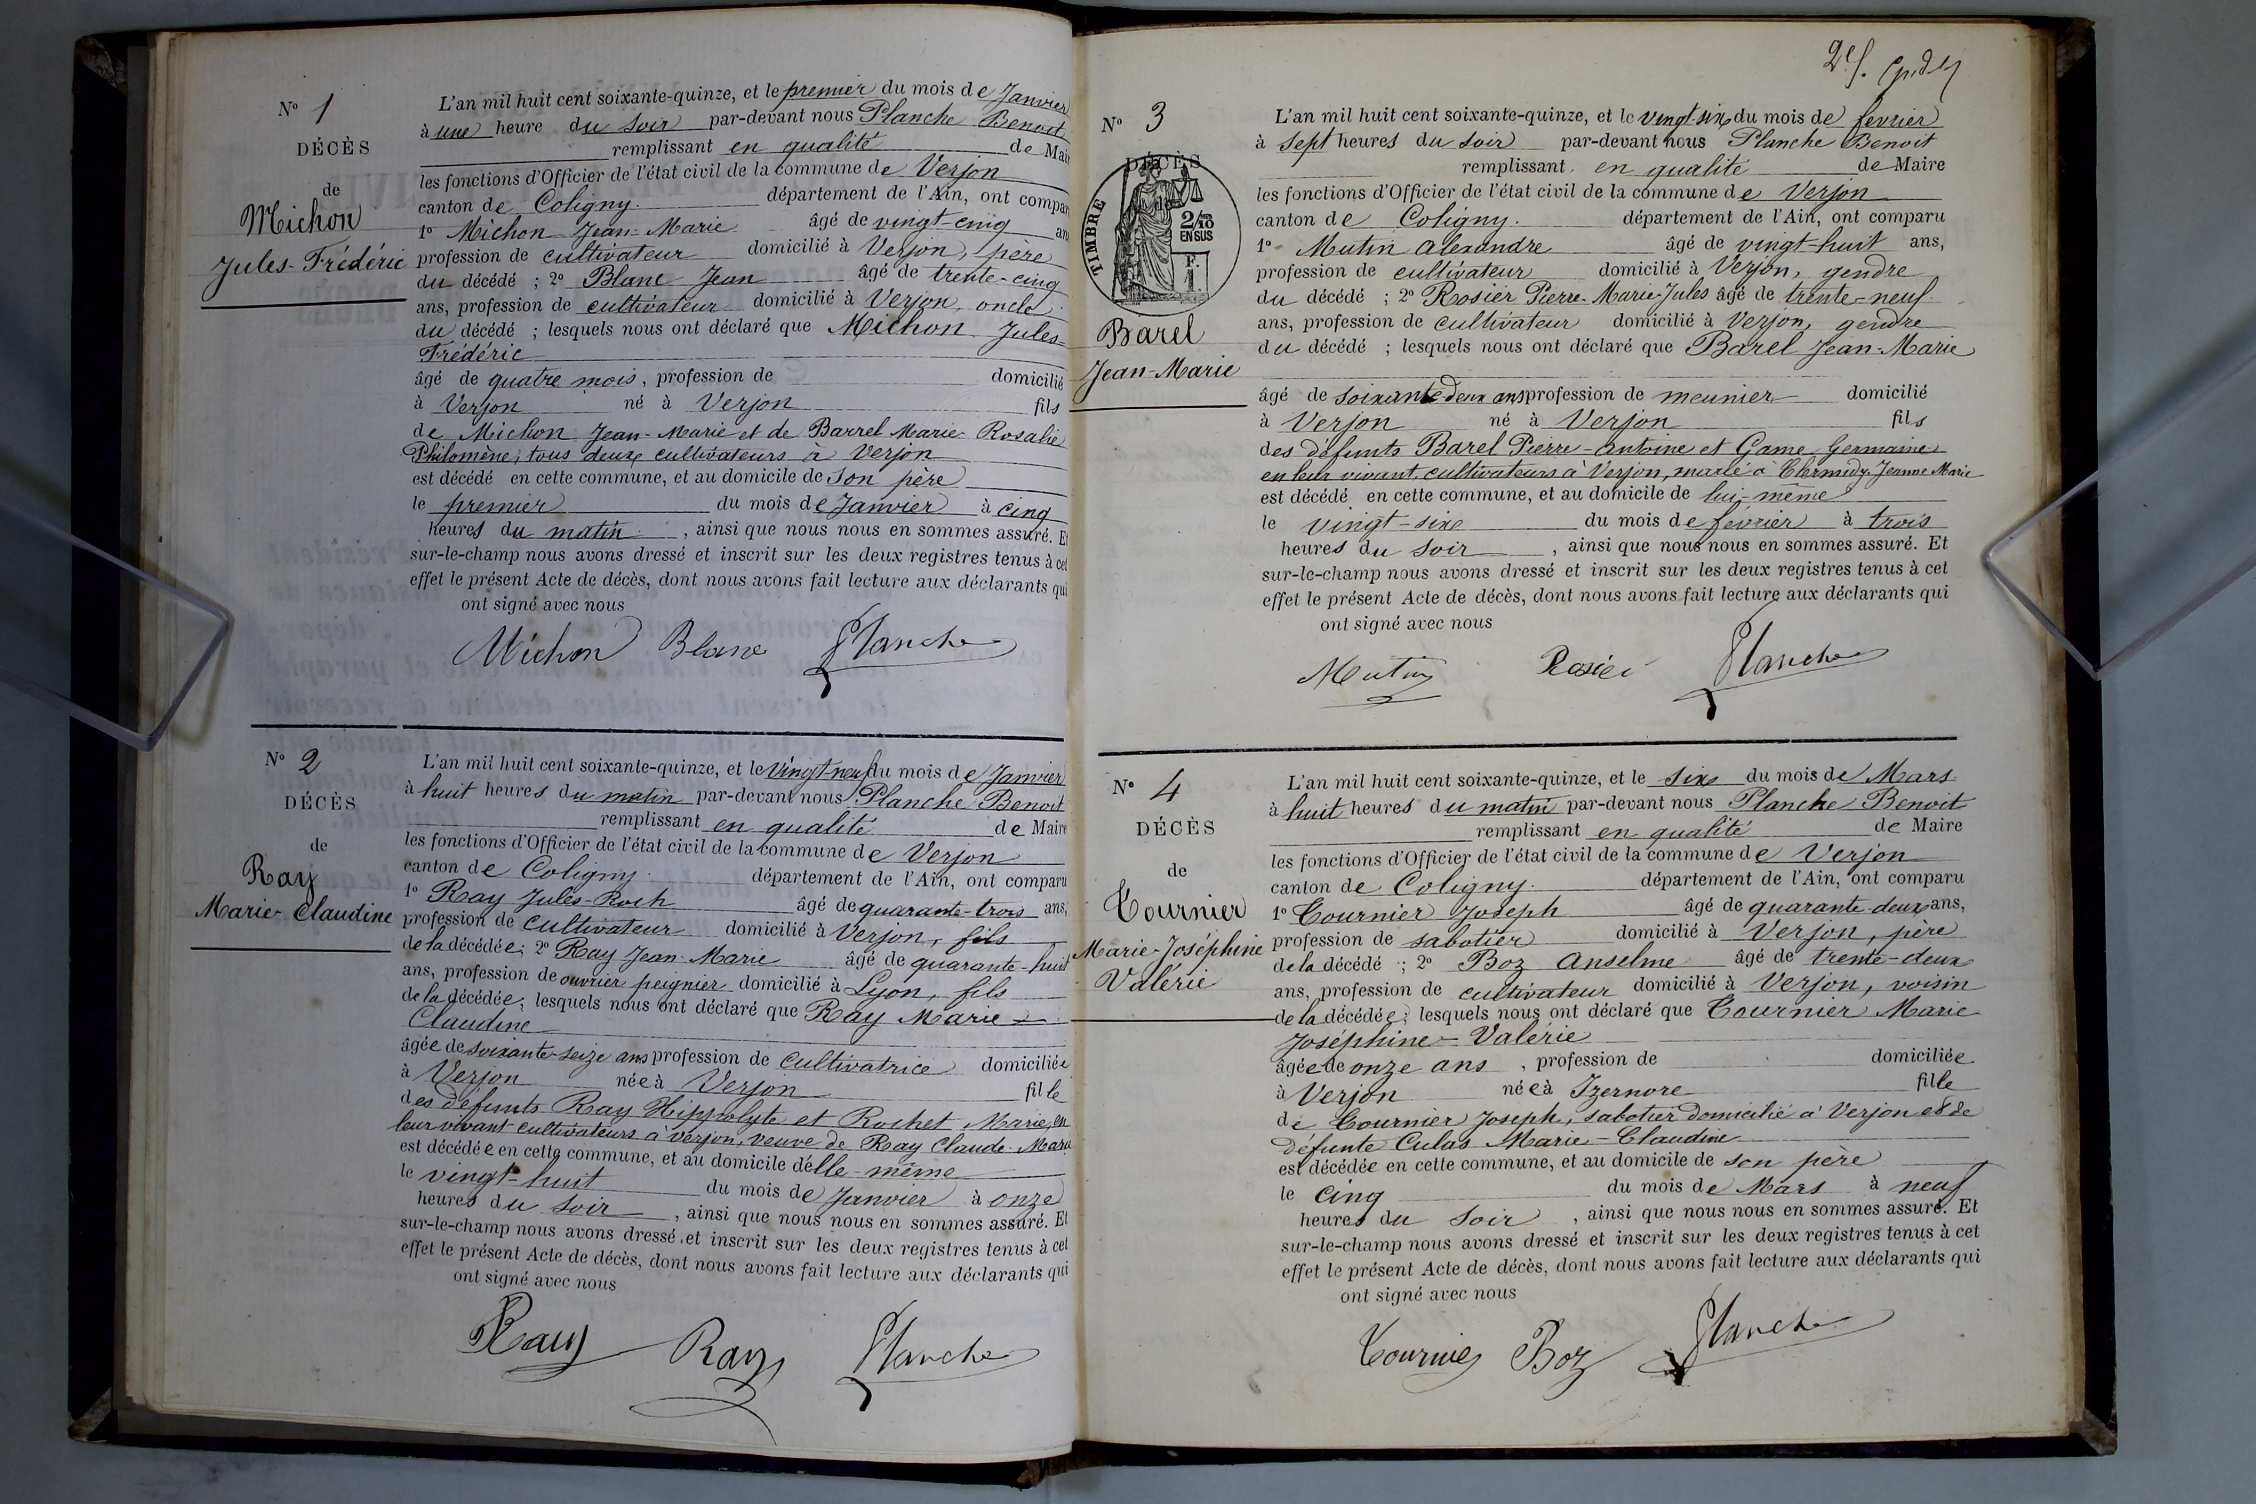 N° 1
DÉCÈS
de
Michon
Jules-Frédéric
L'an mil huit cent soixante-quinze, et le premier du mois de Janvier
à une heure du soir par-devant nous Planche Benoit
remplissant en qualité de Mai
les fonctions d'Officier de l'état civil de la commune de Verjon
canton de Coligny. département de l'Ain, ont compar
1° Michon Jean-Marie âgé de vingt-cinq ans
profession de cultivateur domicilié à Verjon, père
du décédé ; 2° Blanc Jean âgé de trente-cinq
ans, profession de cultivateur domicilié à Verjon, oncle
du décédé ; lesquels nous ont déclaré que Michon Jules-
Frédéric
âgé de quatre mois, profession de domicilié
à Verjon né à Verjon fils
de Michon Jean-Marie et de Barrel Marie-Rosalie
Philomène; tous deux cultivateurs à Verjon
est décédé en cette commune, et au domicile de son père
le premier du mois de Janvier à cinq
heures du matin, ainsi que nous nous en sommes assuré. Et
sur-le-champ nous avons dressé et inscrit sur les deux registres tenus à cet
effet le présent Acte de décès, dont nous avons fait lecture aux déclarants qui
ont signé avec nous
Michon Blanc Planche
N° 2
DÉCÈS
de
Ray
Marie-Claudine
L'an mil huit cent soixante-quinze, et le vingt-neuf du mois de Janvier
à huit heures du matin par-devant nous Planche Benoit
remplissant en qualité de Maire
les fonctions d'Officier de l'état civil de la commune de Verjon
canton de Coligny. département de l'Ain, ont comparu
1° Ray Jules-Roch âgé de quarante-trois ans,
profession de cultivateur domicilié à Verjon, fils
de la décédée; 2° Ray Jean-Marie âgé de quarante-huit
ans, profession de ouvrier peignier domicilié à Lyon, fils
de la décédée; lesquels nous ont déclaré que Ray Marie-
Claudine
âgée de soixante-seize ans profession de cultivatrice domiciliée
à Verjon née à Verjon fille
des défunts Ray Hippolyte et Rochet Marie, en
leur vivant cultivateurs à Verjon, veuve de Ray Claude-Marie
est décédée en cette commune, et au domicile d'elle-même
le vingt-huit du mois de Janvier à onze
heures du soir, ainsi que nous nous en sommes assuré. Et
sur-le-champ nous avons dressé et inscrit sur les deux registres tenus à cet
effet le présent Acte de décès, dont nous avons fait lecture aux déclarants qui
ont signé avec nous
Ray Ray Planche
2e f.
N° 3
DÉCÈS
TIMBRE
2/10
EN SUS
F.
1
Barel
Jean-Marie
L'an mil huit cent soixante-quinze, et le vingt-six du mois de février
à sept heures du soir par-devant nous Planche Benoit
remplissant en qualité de Maire
les fonctions d'Officier de l'état civil de la commune de Verjon
canton de Coligny. département de l'Ain, ont comparu
1° Mutin Alexandre âgé de vingt-huit ans,
profession de cultivateur domicilié à Verjon, gendre
du décédé ; 2° Rosier Pierre-Marie-Jules âgé de trente-neuf
ans, profession de cultivateur domicilié à Verjon, gendre
du décédé ; lesquels nous ont déclaré que Barel Jean-Marie
âgé de soixante-deux ans profession de meunier domicilié
à Verjon né à Verjon fils
des défunts Barel Pierre-Antoine et Game Germaine
en leur vivant, cultivateurs à Verjon, marié à Clermidy Jeanne Marie
est décédé en cette commune, et au domicile de lui-même
le vingt-six du mois de février à trois
heures du soir, ainsi que nous nous en sommes assuré. Et
sur-le-champ nous avons dressé et inscrit sur les deux registres tenus à cet
effet le présent Acte de décès, dont nous avons fait lecture aux déclarants qui
ont signé avec nous
Mutin Rosier Planche
N° 4
DÉCÈS
de
Tournier
Marie-Joséphine
Valérie
L'an mil huit cent soixante-quinze, et le six du mois de Mars
à huit heures du matin par-devant nous Planche Benoit
remplissant en qualité de Maire
les fonctions d'Officier de l'état civil de la commune de Verjon
canton de Coligny. département de l'Ain, ont comparu
1° Tournier Joseph âgé de quarante-deux ans,
profession de sabotier domicilié à Verjon, père
de la décédé ; 2° Boz Anselme âgé de trente-deux
ans, profession de cultivateur domicilié à Verjon, voisin
de la décédée; lesquels nous ont déclaré que Tournier Marie
Joséphine-Valérie
âgée de onze ans, profession de domiciliée
à Verjon née à Izernore fille
de Tournier Joseph, sabotier domicilié à Verjon et de
défunte Culas Marie-Claudine
est décédée en cette commune, et au domicile de son père
le cinq du mois de Mars à neuf
heures du soir, ainsi que nous nous en sommes assuré. Et
sur-le-champ nous avons dressé et inscrit sur les deux registres tenus à cet
effet le présent Acte de décès, dont nous avons fait lecture aux déclarants qui
ont signé avec nous
Tournier Boz Planche